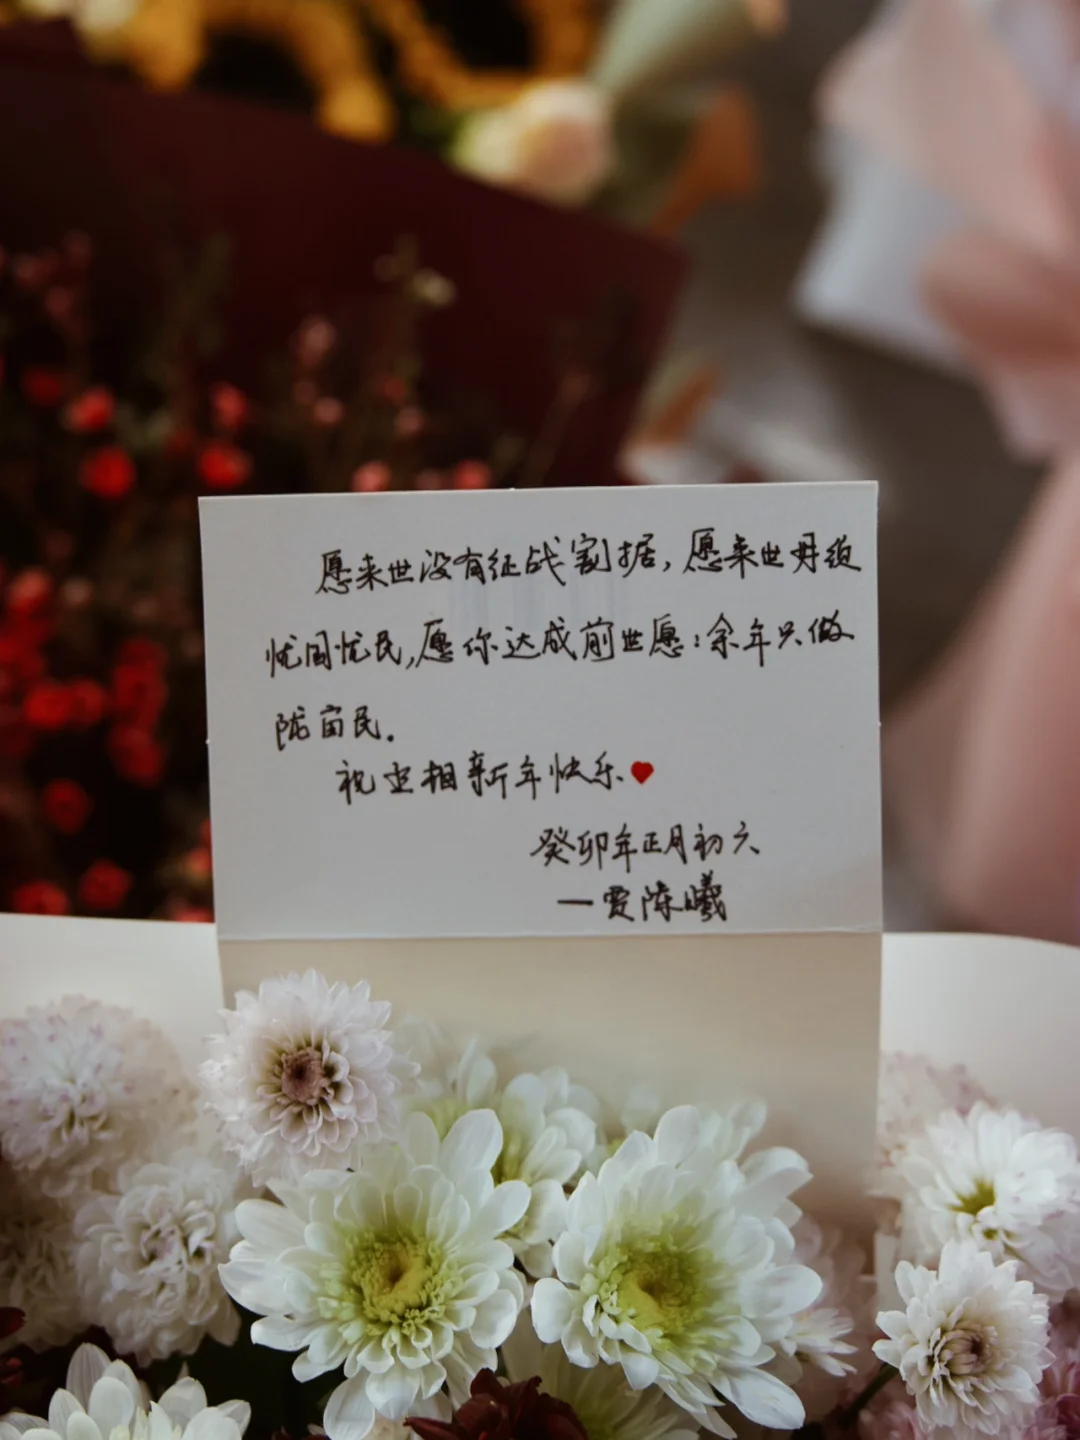 愿来世没有征战割据,愿来世毋须
忧国忧民,愿你达成前世愿:余年只做
陇亩民.
祝丞相新年快乐
癸卯年正月初六
—贾陈曦